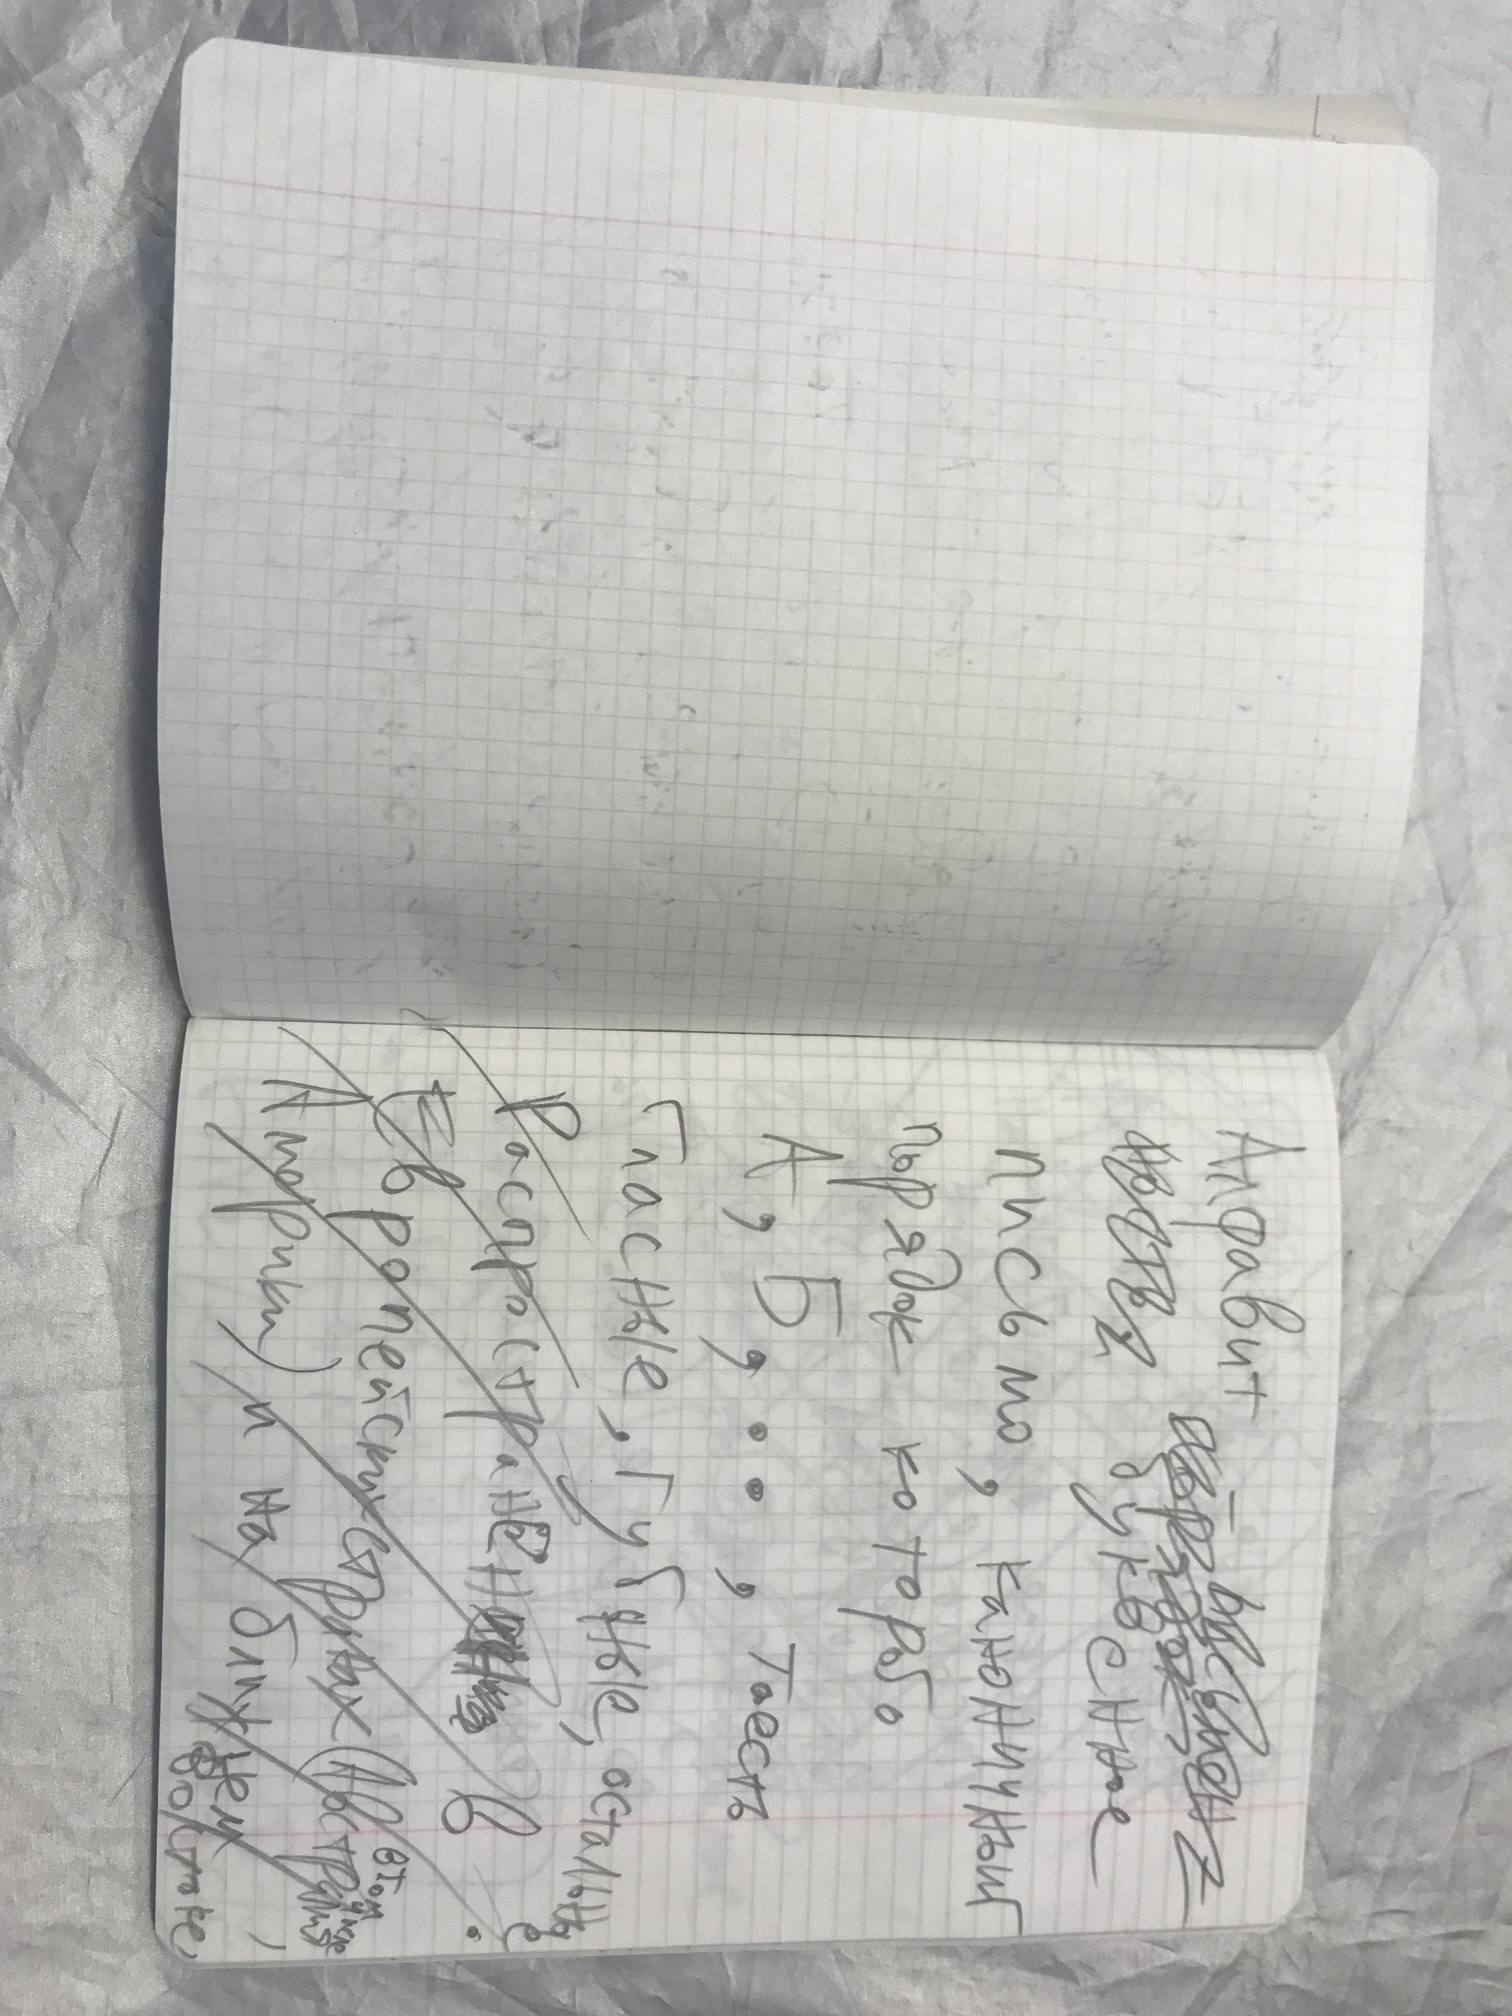 Алфавит
буквсное
письмо, канониичныйг
пырядок которбо
А, Б, . . , таесть
гласные, губные, остальные
Распространен в:
Европейских странах (Австрия,
в том числе
Америка) и на ближнем
востоке,